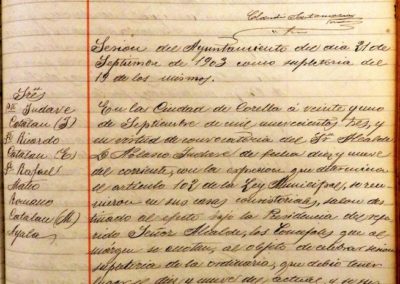 Claudio Santamaria
Sesion del Ayuntamiento del dia 21 de
Septiembre de 1903 como supletoria del
19 de los mismos.
Sres
Pte Judare
Catalan (J)
Sr. Ricardo
Catalan E
Sr. Rafael
Mateo
Romano
Catalan (M)
Ayala
En la Ciudad de Corella á veinte y uno
de Septiembre de mil novecientos tres, y
en virtud de convocatoria del Sr Alcalde
D. Judare de fecha diez y nueve
del corriente, con la expresion que determina
el articulo 102 de la Ley Municipal, se reu-
nieron en sus casas consistoriales, salon des-
tinado al efecto bajo la Presidencia del refe-
rido Señor Alcalde, los Concejales que al
margen se anotan, al objeto de celebrar sesion
supletoria de la ordinaria, que debió tener
lugar el dia diez y nueve del actual, y se